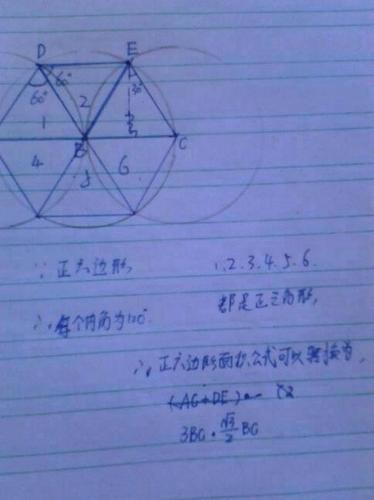 D E
60° 60° 30°
1 2
B C
4 5 6
∵ 正六边形 1.2.3.4.5.6.
∴ 每个内角为120° 都是正三角形,
∴ 正六边形面积公式可以转换为,
(AC+DE)
3BC·√3/2 BC